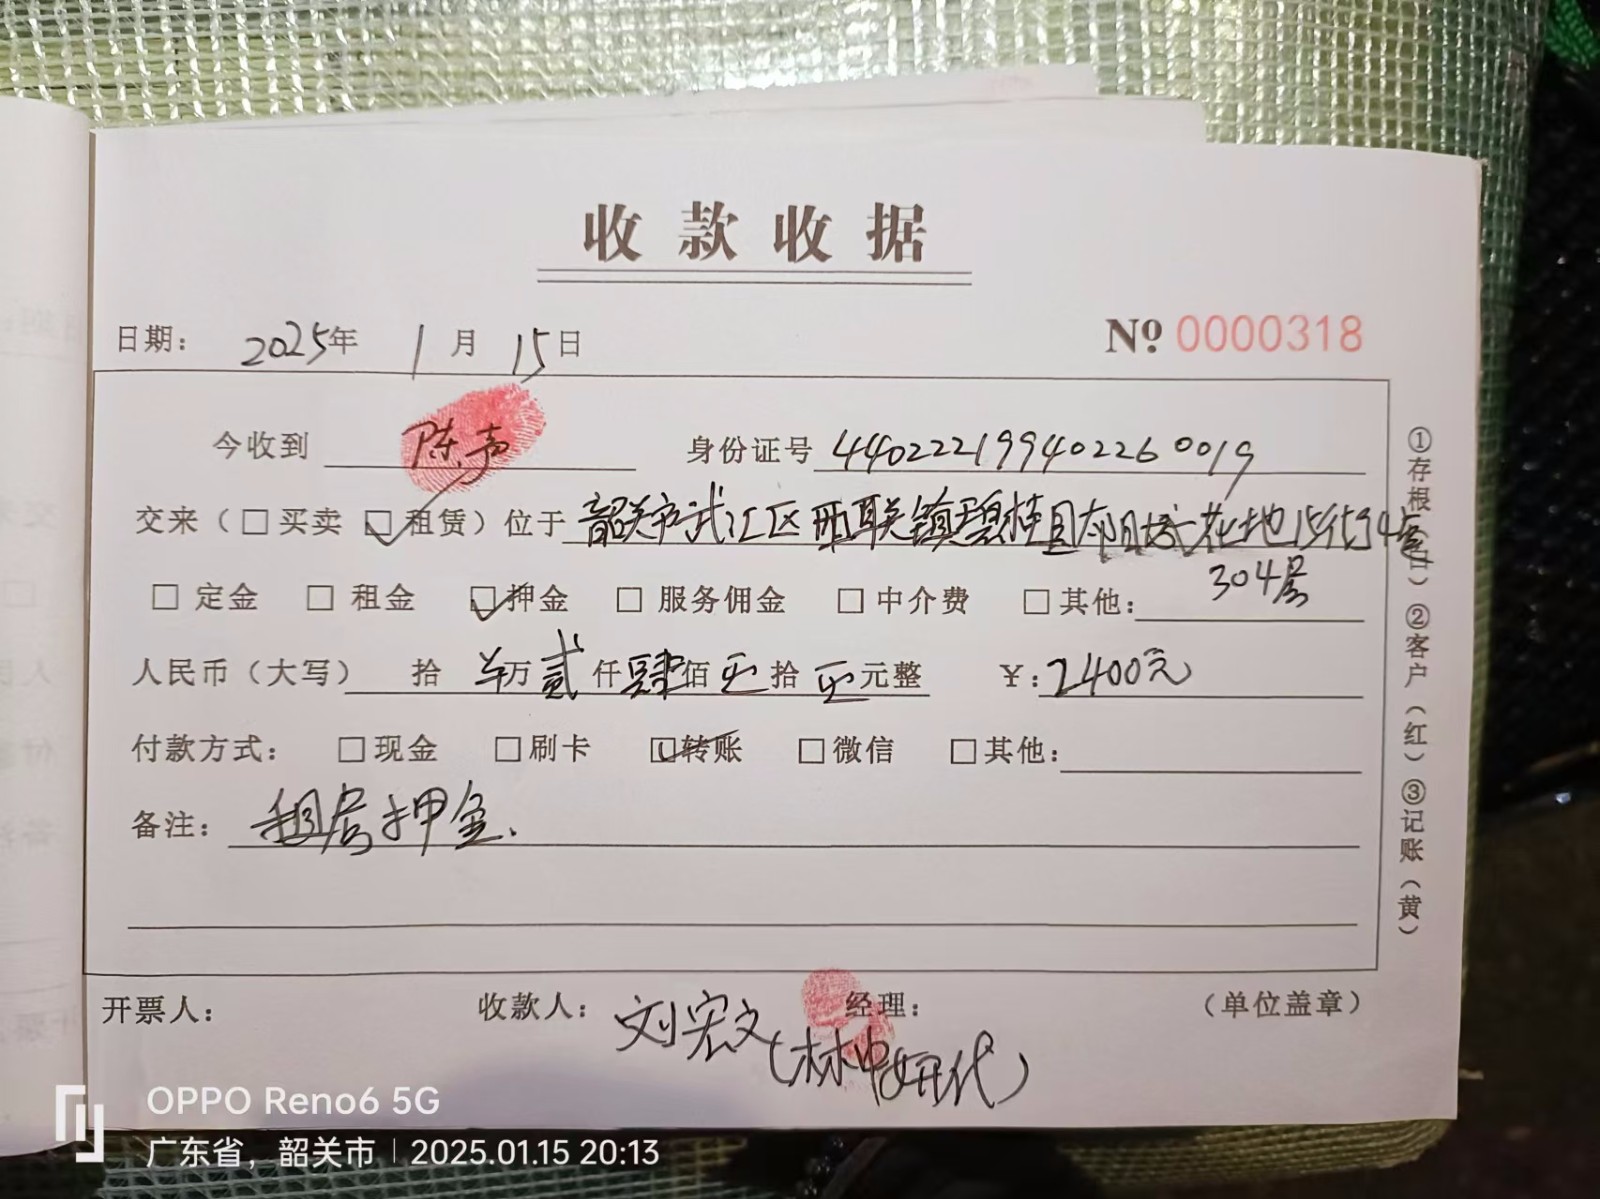 收款收据
日期： 2025年 1月 15日 № 0000318
今收到 陈声 身份证号 440222199402260019
交来（□买卖 ☑租赁）位于 韶关市武江区西联镇碧桂园太阳城花地15街94座
304房
□ 定金 □ 租金 ☑押金 □ 服务佣金 □中介费 □其他：
人民币（大写） 拾 万 贰 仟 肆 佰 拾 元整 ￥：2400元
付款方式： □现金 □刷卡 ☑转账 □微信 □其他：
备注： 租房押金.
开票人： 收款人： 刘宏文 经理： （单位盖章）
（林中妍代）
①存根（白）②客户（红）③记账（黄）
OPPO Reno6 5G
广东省，韶关市 | 2025.01.15 20:13